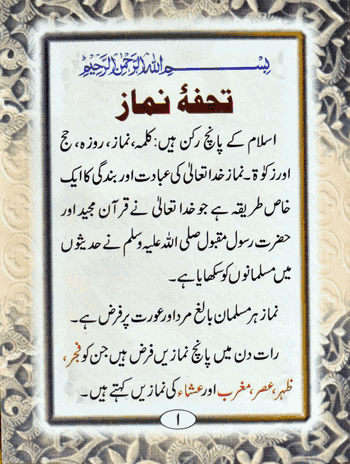 بسم الله الرحمن الرحیم
تحفۂ نماز
اسلام کے پانچ رکن ہیں: کلمہ، نماز، روزہ، حج
اور زکوٰۃ۔ نماز خدا تعالیٰ کی عبادت اور بندگی کا ایک
خاص طریقہ ہے جو خدا تعالیٰ نے قرآن مجید اور
حضرت رسول مقبول صلی اللہ علیہ وسلم نے حدیثوں
میں مسلمانوں کو سکھایا ہے۔
نماز ہر مسلمان بالغ مرد اور عورت پر فرض ہے۔
رات دن میں پانچ نمازیں فرض ہیں جن کو فجر،
ظہر، عصر، مغرب اور عشاء کی نمازیں کہتے ہیں۔
۱